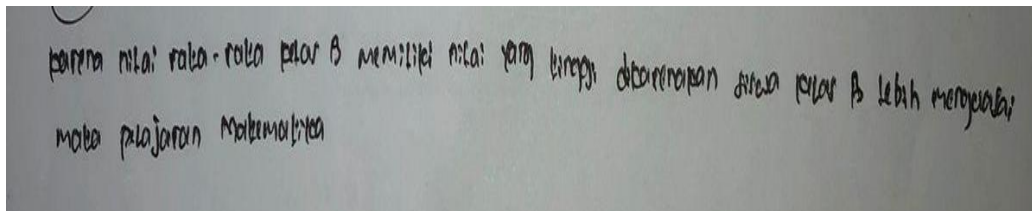 karena nilai rata-rata kelas B memiliki nilai yang tinggi dikarenakan siswa kelas B lebih menguasai
mata pelajaran Matematika